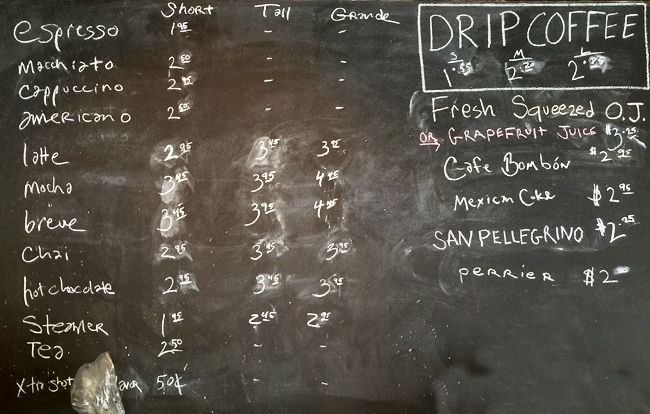 Short Tall Grande
espresso 1.95 - -
Macchiato 2.50 - -
cappuccino 2.95 - -
americano 2.50 - -
latte 2.95 3.45 3.95
mocha 3.45 3.95 4.45
breve 3.45 3.95 4.45
chai 2.95 3.45 3.95
hot chocolate 2.95 3.45 3.95
Steamer 1.95 2.45 2.95
Tea 2.50 - -
Xtra shot 50¢ - -
DRIP COFFEE
S M L
Fresh Squeezed O.J.
OR GRAPEFRUIT JUICE
Cafe Bombón $2.95
Mexican Coke $2.95
SAN PELLEGRINO
PERRIER